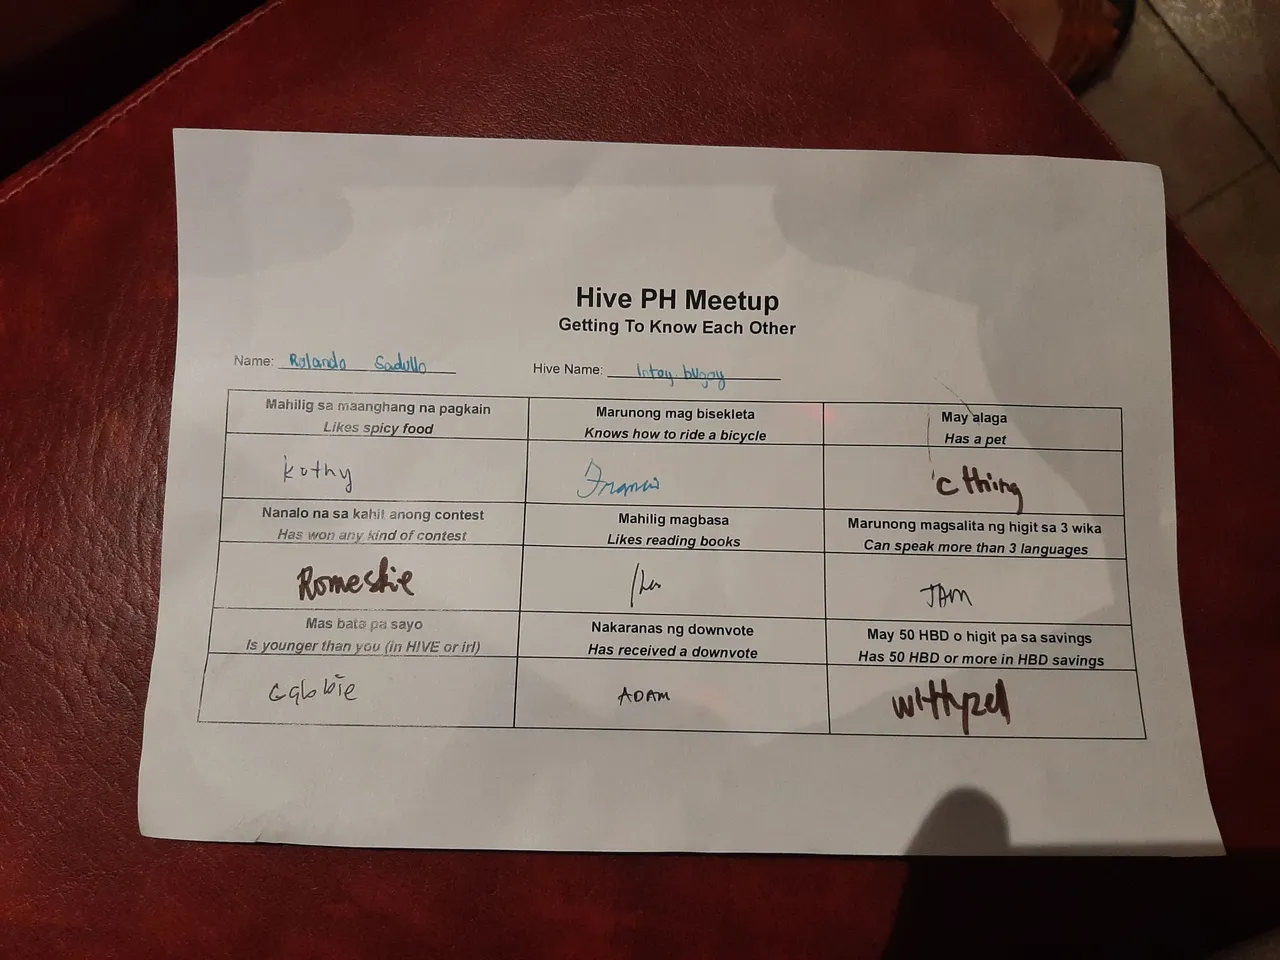 Hive PH Meetup
Getting To Know Each Other
Name: Rolando Sadullo Hive Name: Intoy.bugoy
Mahilig sa maanghang na pagkain
Likes spicy food
Marunong mag bisekleta
Knows how to ride a bicycle
May alaga
Has a pet
Kothy
Francis
c thing
Nanalo na sa kahit anong contest
Has won any kind of contest
Mahilig magbasa
Likes reading books
Marunong magsalita ng higit sa 3 wika
Can speak more than 3 languages
Romeskie
JAM
Mas bata pa sayo
Is younger than you (in HIVE or irl)
Nakaranas ng downvote
Has received a downvote
May 50 HBD o higit pa sa savings
Has 50 HBD or more in HBD savings
ADAM
wittyzell